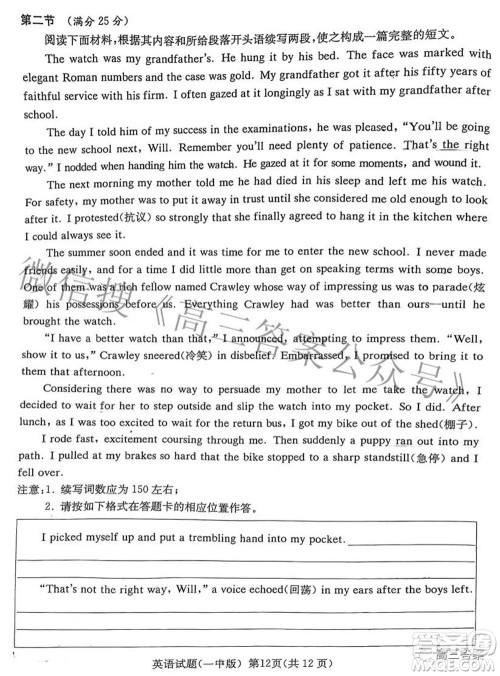 第二节 (满分 25 分)
阅读下面材料,根据其内容和所给段落开头语续写两段,使之构成一篇完整的短文。
The watch was my grandfather's. He hung it by his bed. The face was marked with
elegant Roman numbers and the case was gold. My grandfather got it after his fifty years of
faithful service with his firm. I often gazed at it longingly as I sat with my grandfather after
school.
The day I told him of my success in the examinations, he was pleased, “You'll be going
to the new school next, Will. Remember you'll need plenty of patience. That's the right
way.” I nodded when handing him the watch. He gazed at it for some moments, and wound it.
The next morning my mother told me he had died in his sleep and left me his watch.
For safety, my mother was to take care of it until she considered me old enough to look
after it. I protested(抗议) so strongly that she finally agreed to hang it in the kitchen where
I could always see it.
The summer soon ended and it was time for me to enter the new school. I never made
friends easily, and for a time I did little more than get on speaking terms with some boys.
One of them was a rich fellow named Crawley whose way of impressing us was to parade(炫
耀) his possessions before us. Everything Crawley had was better than ours—until he
brought the watch.
“I have a better watch than that,” I announced in an even tone. “Well,
show it to us,” Crawley sneered(冷笑) in disbelief. Embarrassed, I promised to bring it to
them that afternoon.
Considering there was no way to persuade my mother to let me take the watch, I
decided to wait for her to step outside and slip the watch into my pocket. So I did. After
lunch, as I was too excited to wait for the return bus, I got my bike out of the shed(棚子).
I rode fast, excitement coursing through me. Then suddenly a puppy ran out into my
path. I pulled at my brakes so hard that the bike stopped to a sharp standstill(急停) and I
fell over.
注意:1. 续写词数应为 150 左右;
2. 请按如下格式在答题卡的相应位置作答。
I picked myself up and put a trembling hand into my pocket.
“That's not the right way, Will,” a voice echoed(回荡) in my ears after the boys left.
英语试题(一中版) 第12页(共 12 页)
高三答案
微信搜《高三答案公众号》